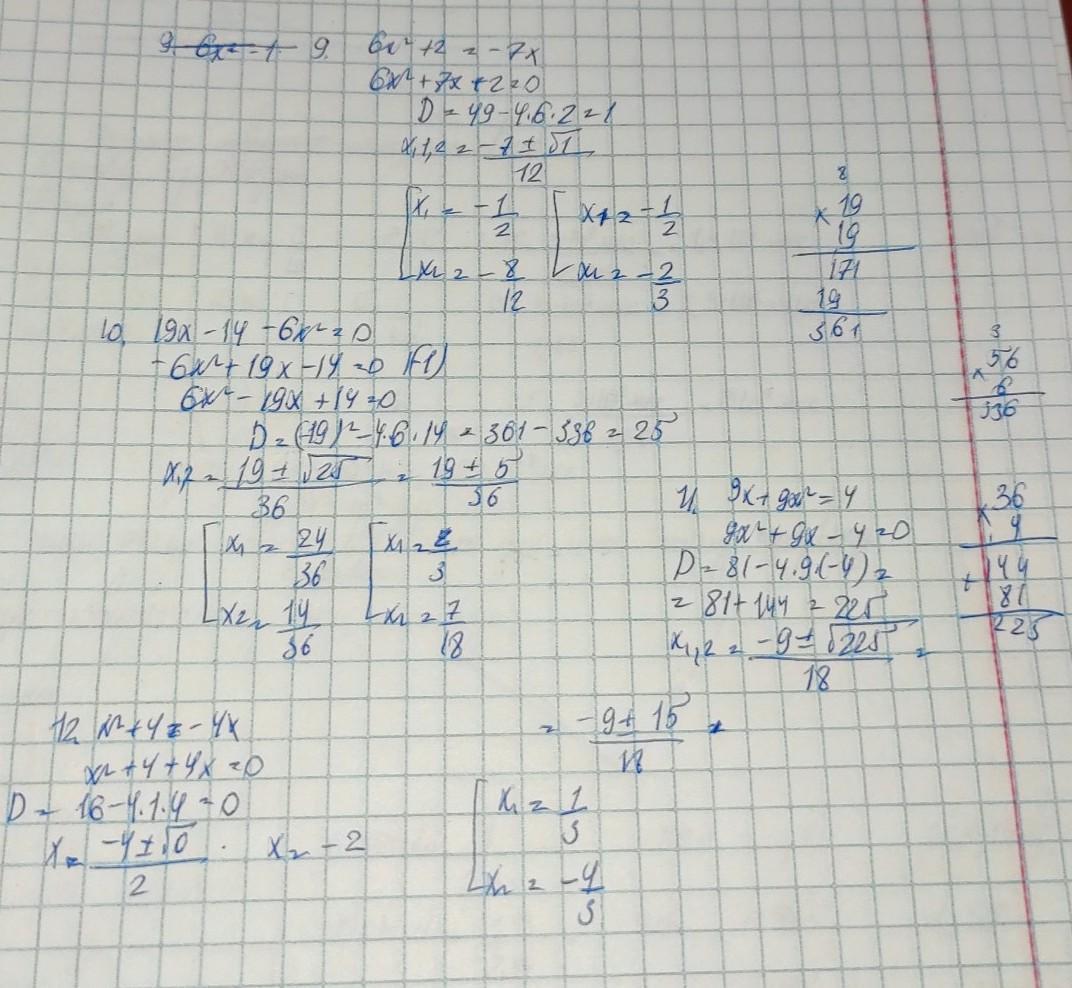 9. 6x² = -1 9. 6x² + 2 = -7x
6x² + 7x + 2 = 0
D = 49 - 4·6·2 = 1
x₁,₂ = (-7 ± √1)/12
[x₁ = -1/2 [x₁ = -1/2
x₂ = -8/12 x₂ = -2/3
8
× 19
19
171
19
361
10. 19x - 14 - 6x² = 0
-6x² + 19x - 14 = 0 |(-1)
6x² - 19x + 14 = 0
D = (-19)² - 4·6·14 = 361 - 336 = 25
x₁,₂ = (19 ± √25)/36 = (19 ± 5)/36
[x₁ = 24/36 [x₁ = 2/3
x₂ = 14/36 x₂ = 7/18
3
× 56
6
336
11. 9x + 9x² = 4
9x² + 9x - 4 = 0
D = 81 - 4·9·(-4) =
= 81 + 144 = 225
x₁,₂ = (-9 ± √225)/18 =
= (-9 ± 15)/18 =
[x₁ = 1/3
x₂ = -4/3
× 36
4
+ 144
81
225
12. x² + 4 = -4x
x² + 4 + 4x = 0
D = 16 - 4·1·4 = 0
x = (-4 ± √0)/2 · x = -2